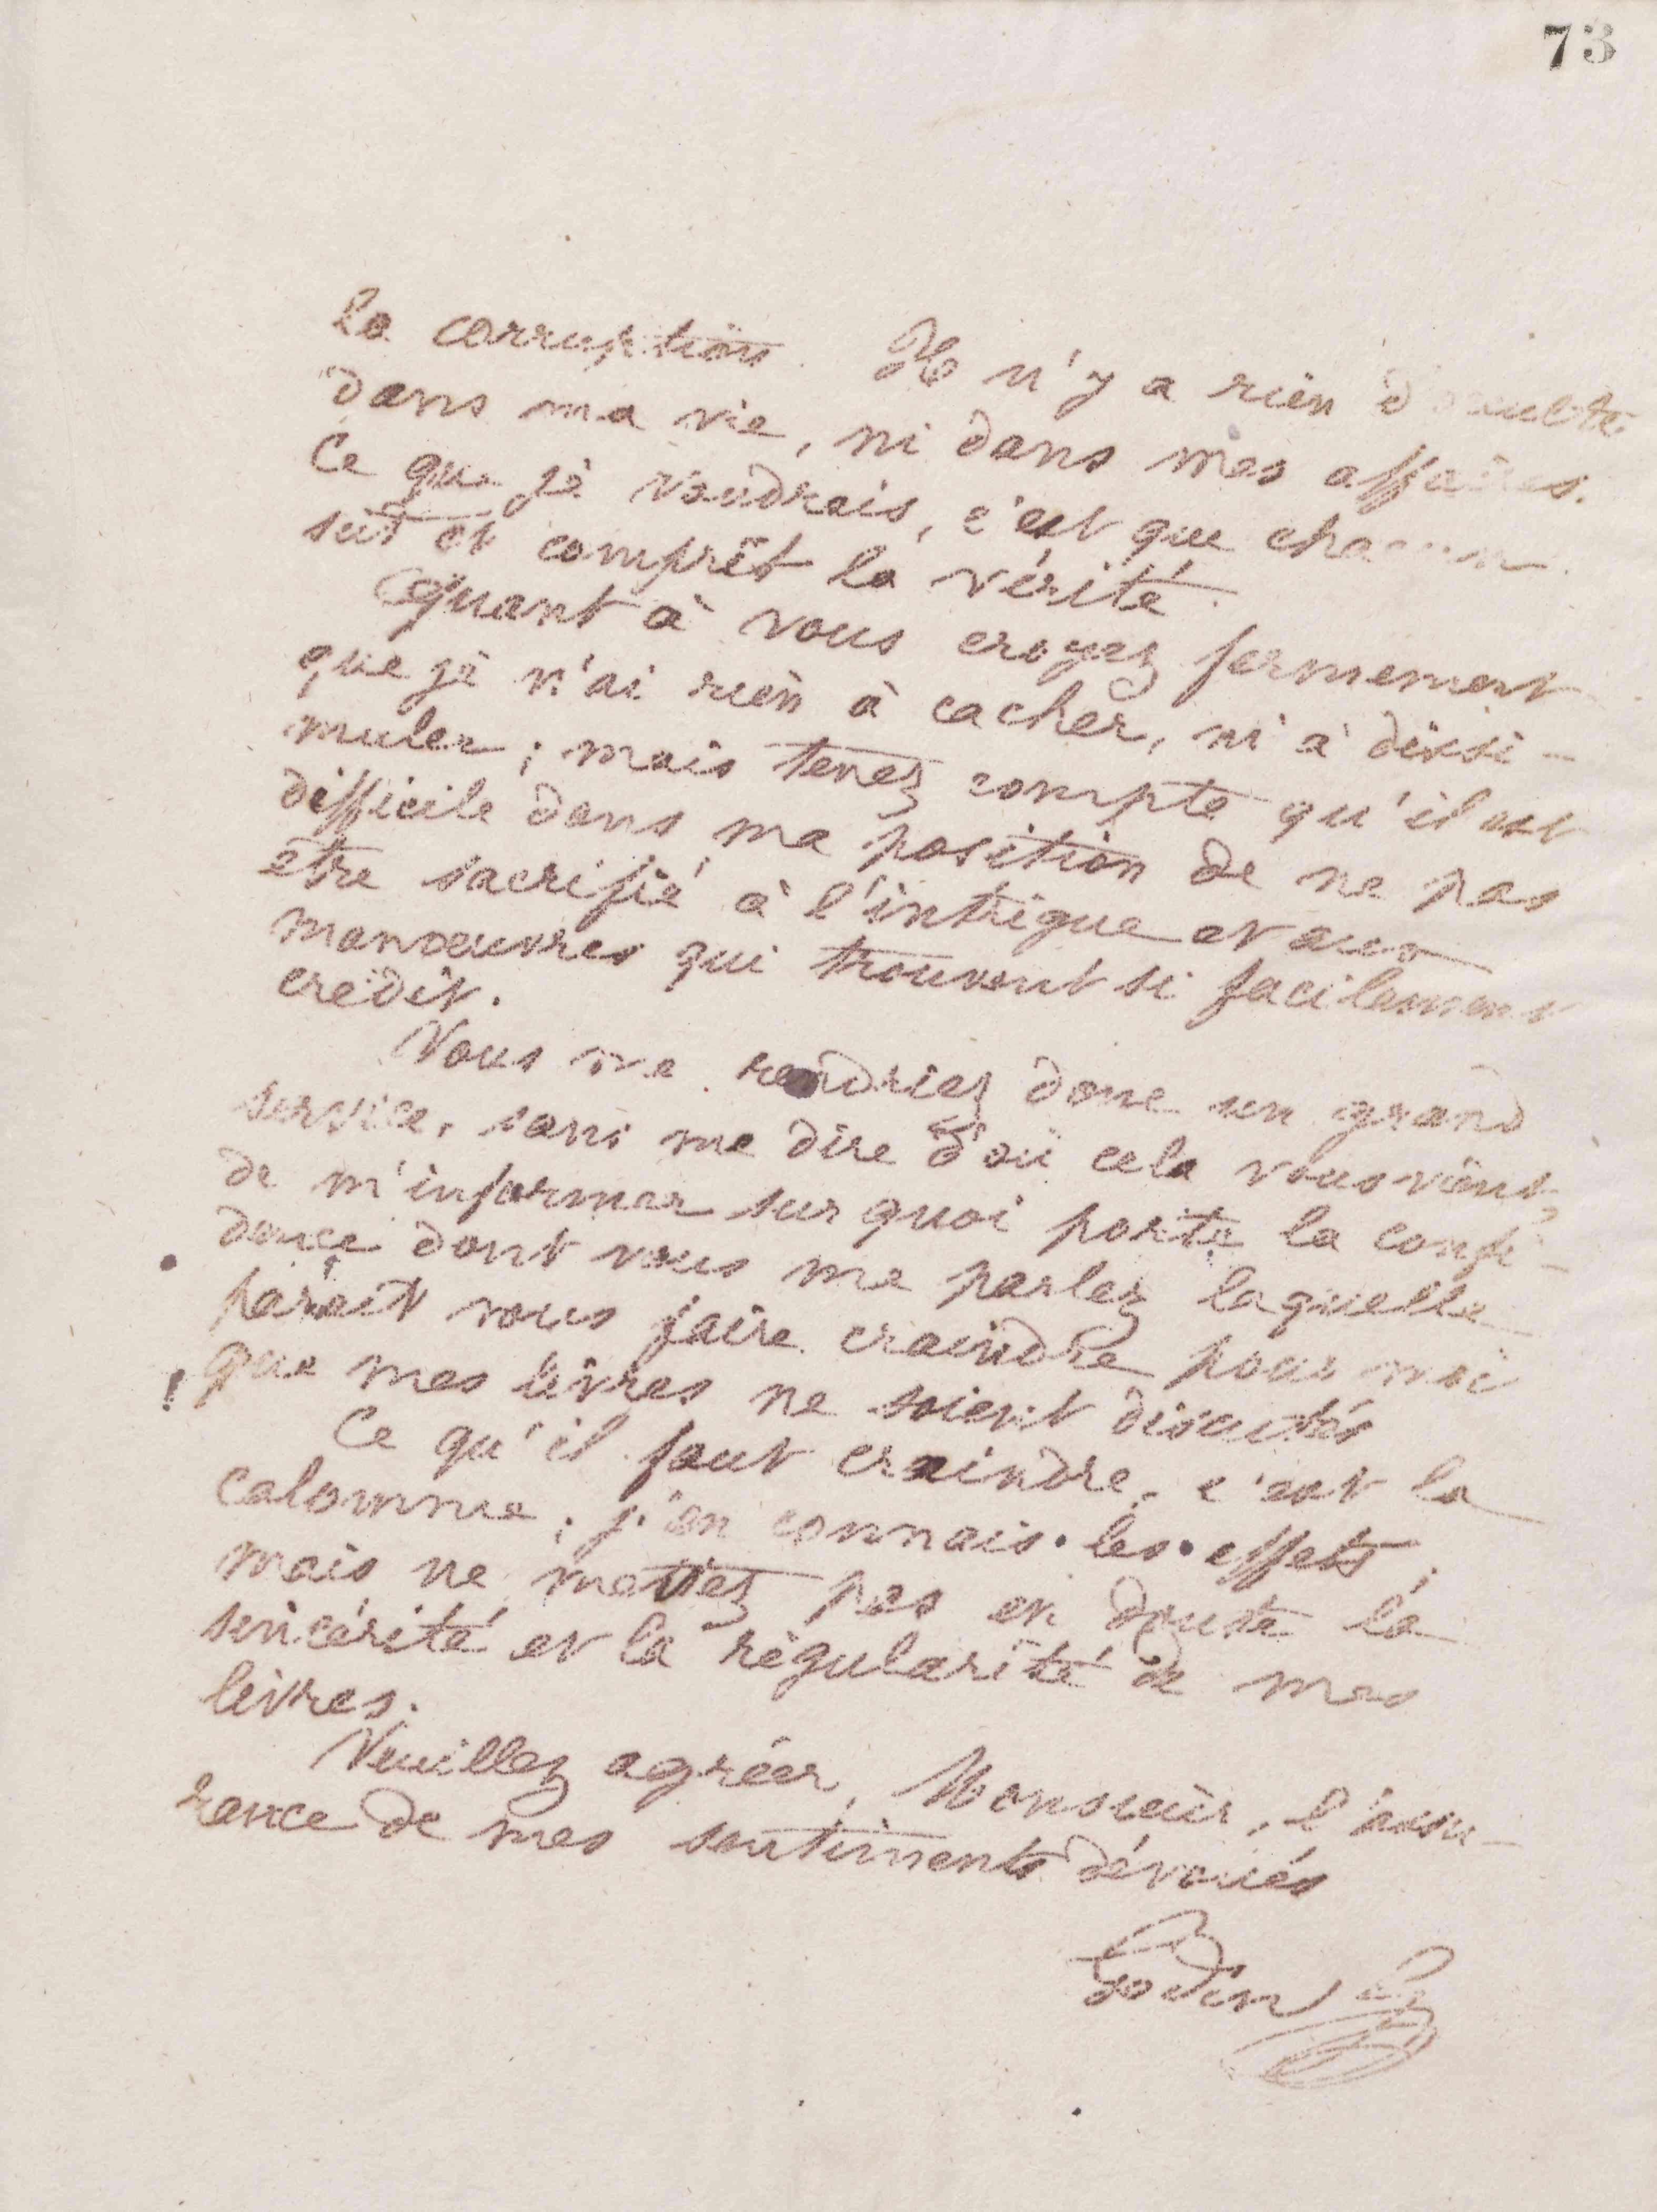 73
la corruption. Il n'y a rien d'occulte
dans ma vie, ni dans mes affaires.
Ce que je voudrais, c'est que chacun
sut et comprît la vérité.
Quant à vous croyez fermement
que je n'ai rien à cacher, ni à dissi-
muler; mais tenez compte qu'il est
difficile dans ma position de ne pas
être sacrifié à l'intrigue et aux
manoeuvres qui trouvent si facilement
crédit.
Vous me rendriez donc un grand
service, sans me dire d'où cela vous vient,
de m'informer sur quoi porte la confi-
dence dont vous me parlez laquelle
paraît vous faire craindre pour moi
que mes livres ne soient discutés
Ce qu'il faut craindre, c'est la
calomnie; j'en connais les effets,
mais ne mettez pas en doute la
sincérité et la régularité de mes
livres.
Veuillez agréer, Monsieur, l'assu-
rance de mes sentiments dévoués
Godin